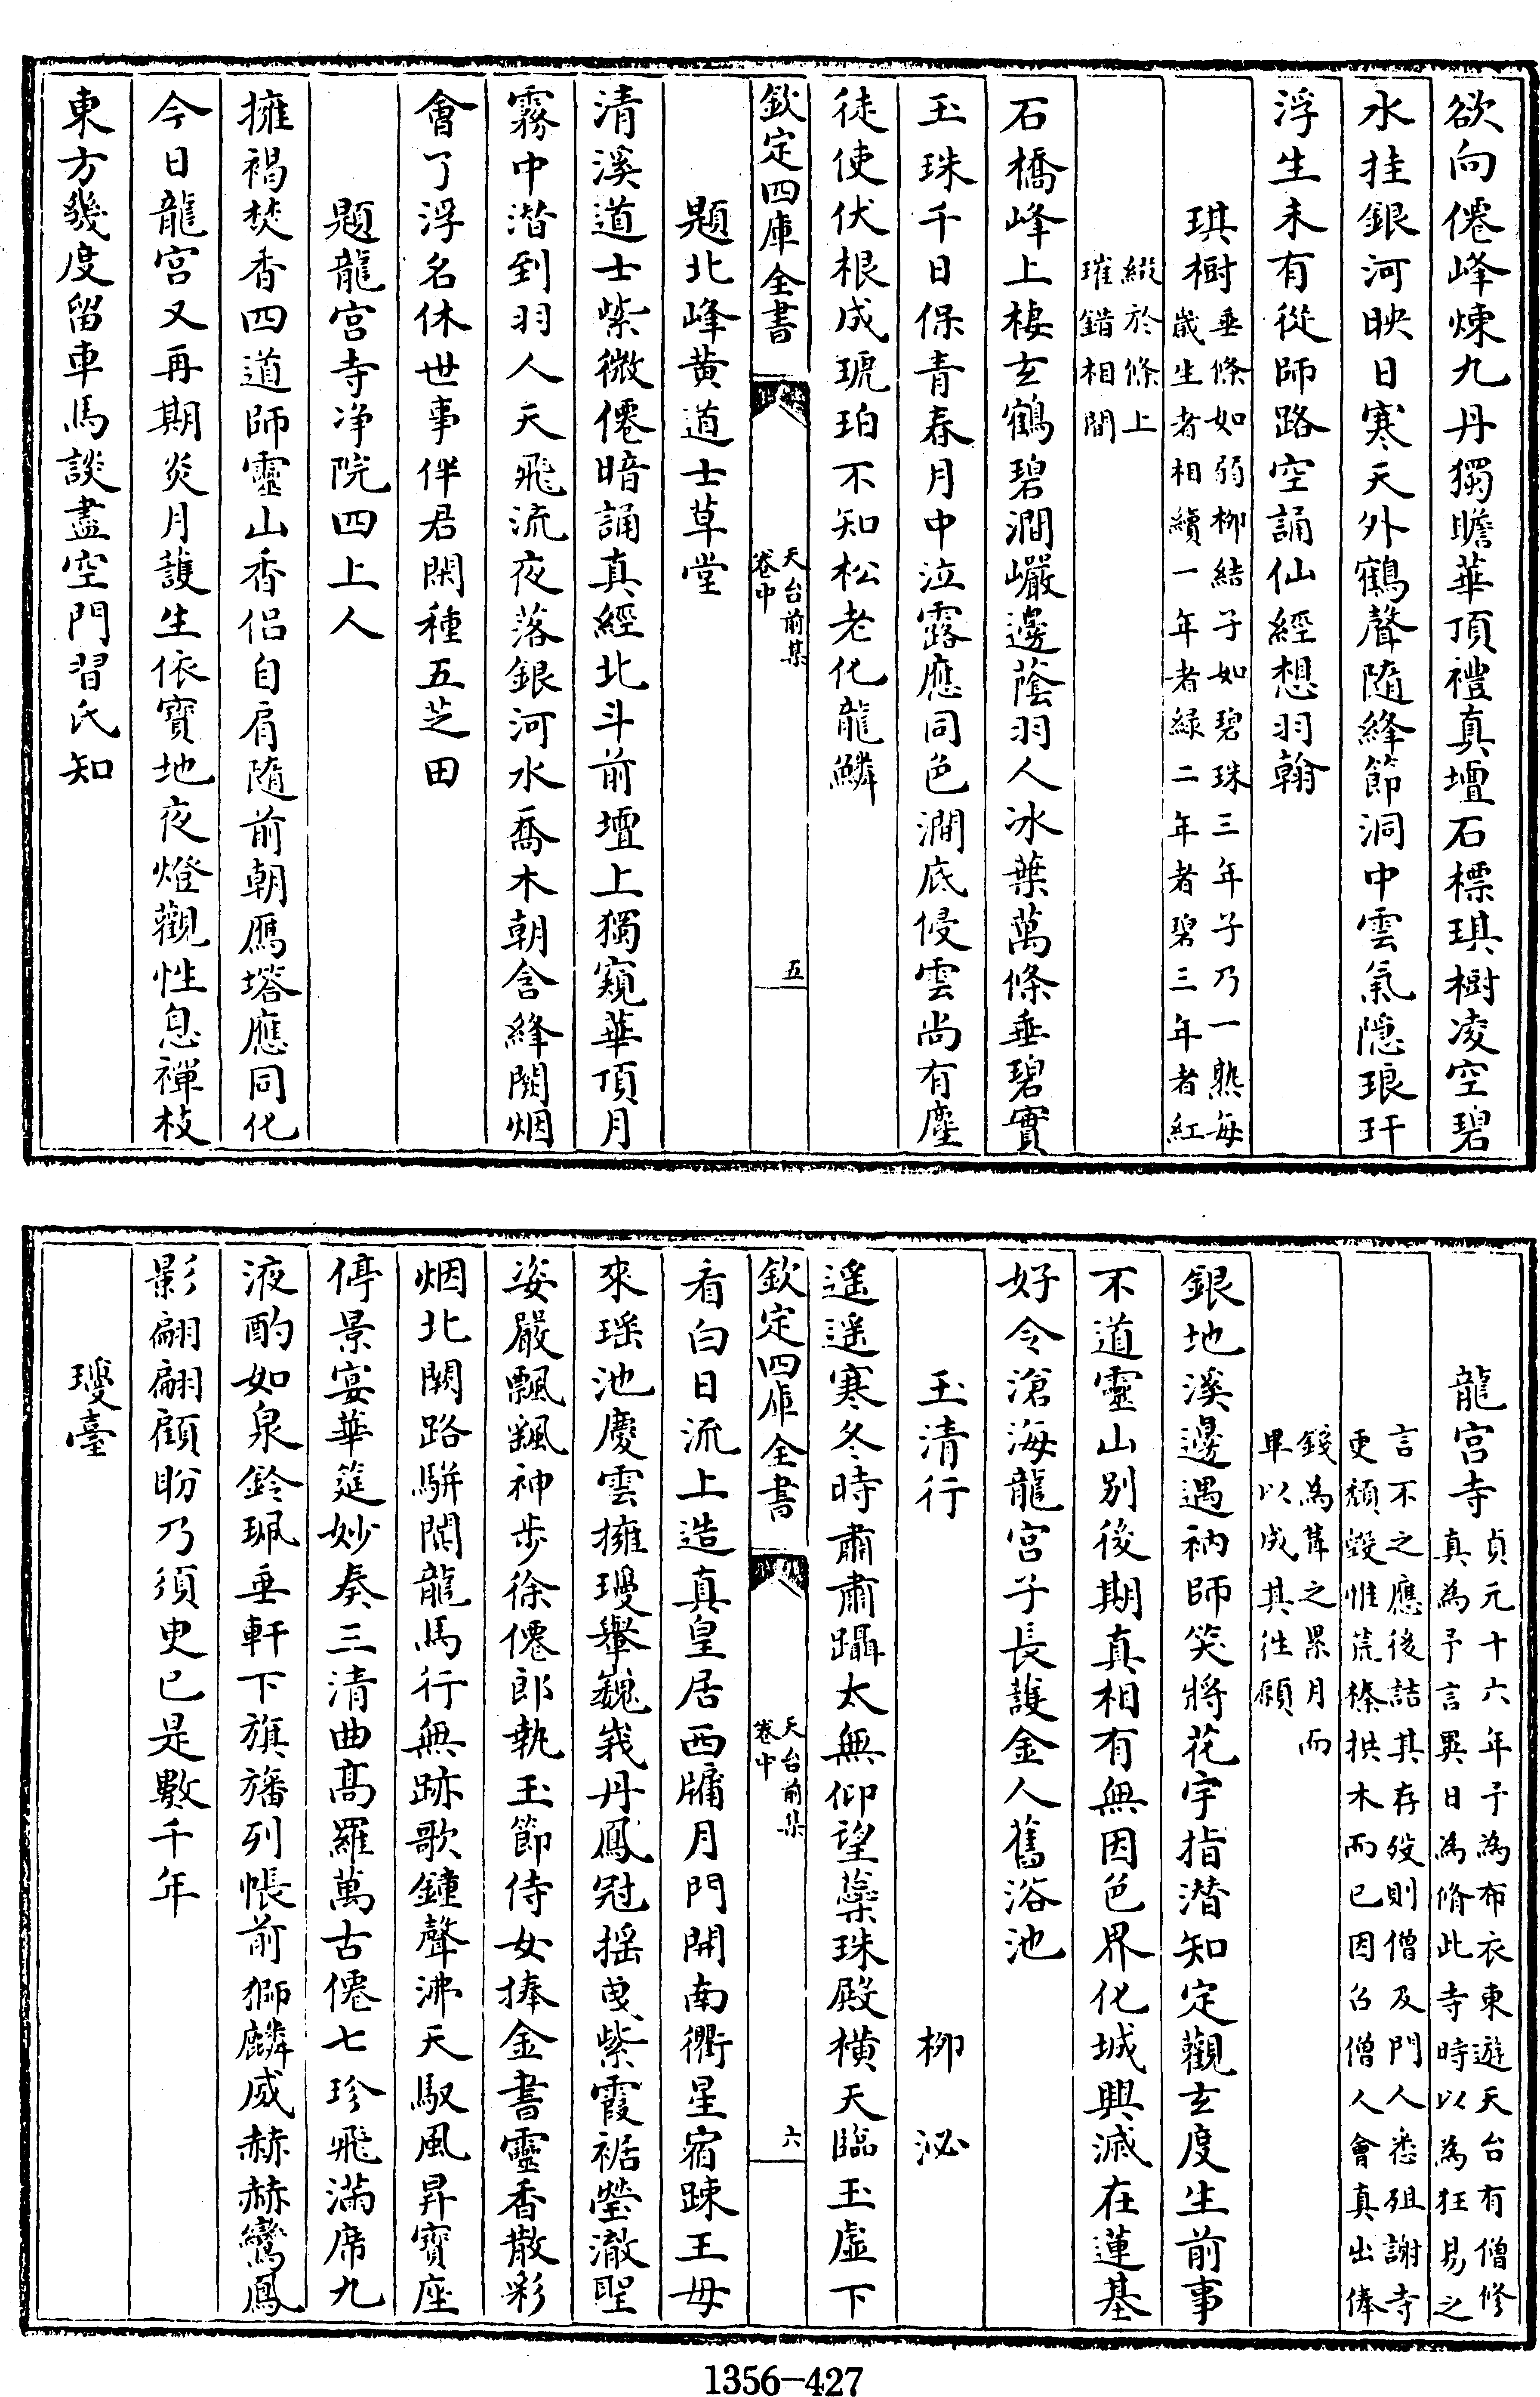 欲向僊峰煉九丹獨瞻華頂禮真壇石標琪樹凌空碧
水挂銀河映日寒天外鶴聲隨絳節洞中雲氣隱琅玕
浮生未有從師路空誦仙經想羽翰
琪樹垂條如弱柳結子如碧珠三年子乃一熟每
歲生者相續一年者緑二年者碧三年者紅
綴於條上
璀錯相間
石橋峰上棲玄鶴碧澗巖邊蔭羽人冰葉萬條垂碧實
玉珠千日保青春月中泣露應同色澗底侵雲尚有塵
徒使伏根成琥珀不知松老化龍鱗
欽定四庫全書
天台前集
卷中
五
題北峰黄道士草堂
清溪道士紫微僊暗誦真經北斗前壇上獨窺華頂月
霧中潜到羽人天飛流夜落銀河水喬木朝含絳闕烟
會了浮名休世事伴君閑種五芝田
題龍宫寺净院四上人
擁褐焚香四道師靈山香侣自肩隨前朝鴈塔應同化
今日龍宫又再期炎月護生依寶地夜燈觀性息禪枝
東方幾度留車馬談盡空門習氏知
龍宫寺貞元十六年予為布衣東遊天台有僧修
真為予言異日為脩此寺時以為狂易之
言不之應後詰其存殁則僧及門人悉殂謝寺
更頽毁惟荒榛拱木而已因召僧人會真出俸
錢為葺之累月而
畢以成其徃願
銀地溪邊遇衲師笑將花宇指潜知定觀玄度生前事
不道靈山别後期真相有無因色界化城興滅在蓮基
好令滄海龍宫子長護金人舊浴池
玉清行　柳泌
遥遥寒冬時肅肅躡太無仰望蘂珠殿横天臨玉虛下
欽定四庫全書
天台前集
卷中
六
看白日流上造真皇居西牖月門開南衢星宿踈王母
來瑶池慶雲擁瓊轝巍峩丹鳳冠摇曵紫霞裾瑩澈聖
姿嚴飄飄神歩徐僊郎執玉節侍女捧金書靈香散彩
烟北闕路駢闐龍馬行無跡歌鐘聲沸天馭風昇寶座
停景宴華筵妙奏三清曲髙羅萬古僊七珍飛滿席九
液酌如泉鈴珮垂軒下旗旛列帳前獅麟威赫赫鸞鳳
影翩翩顧盼乃須臾已是數千年
瓊臺
1356-427